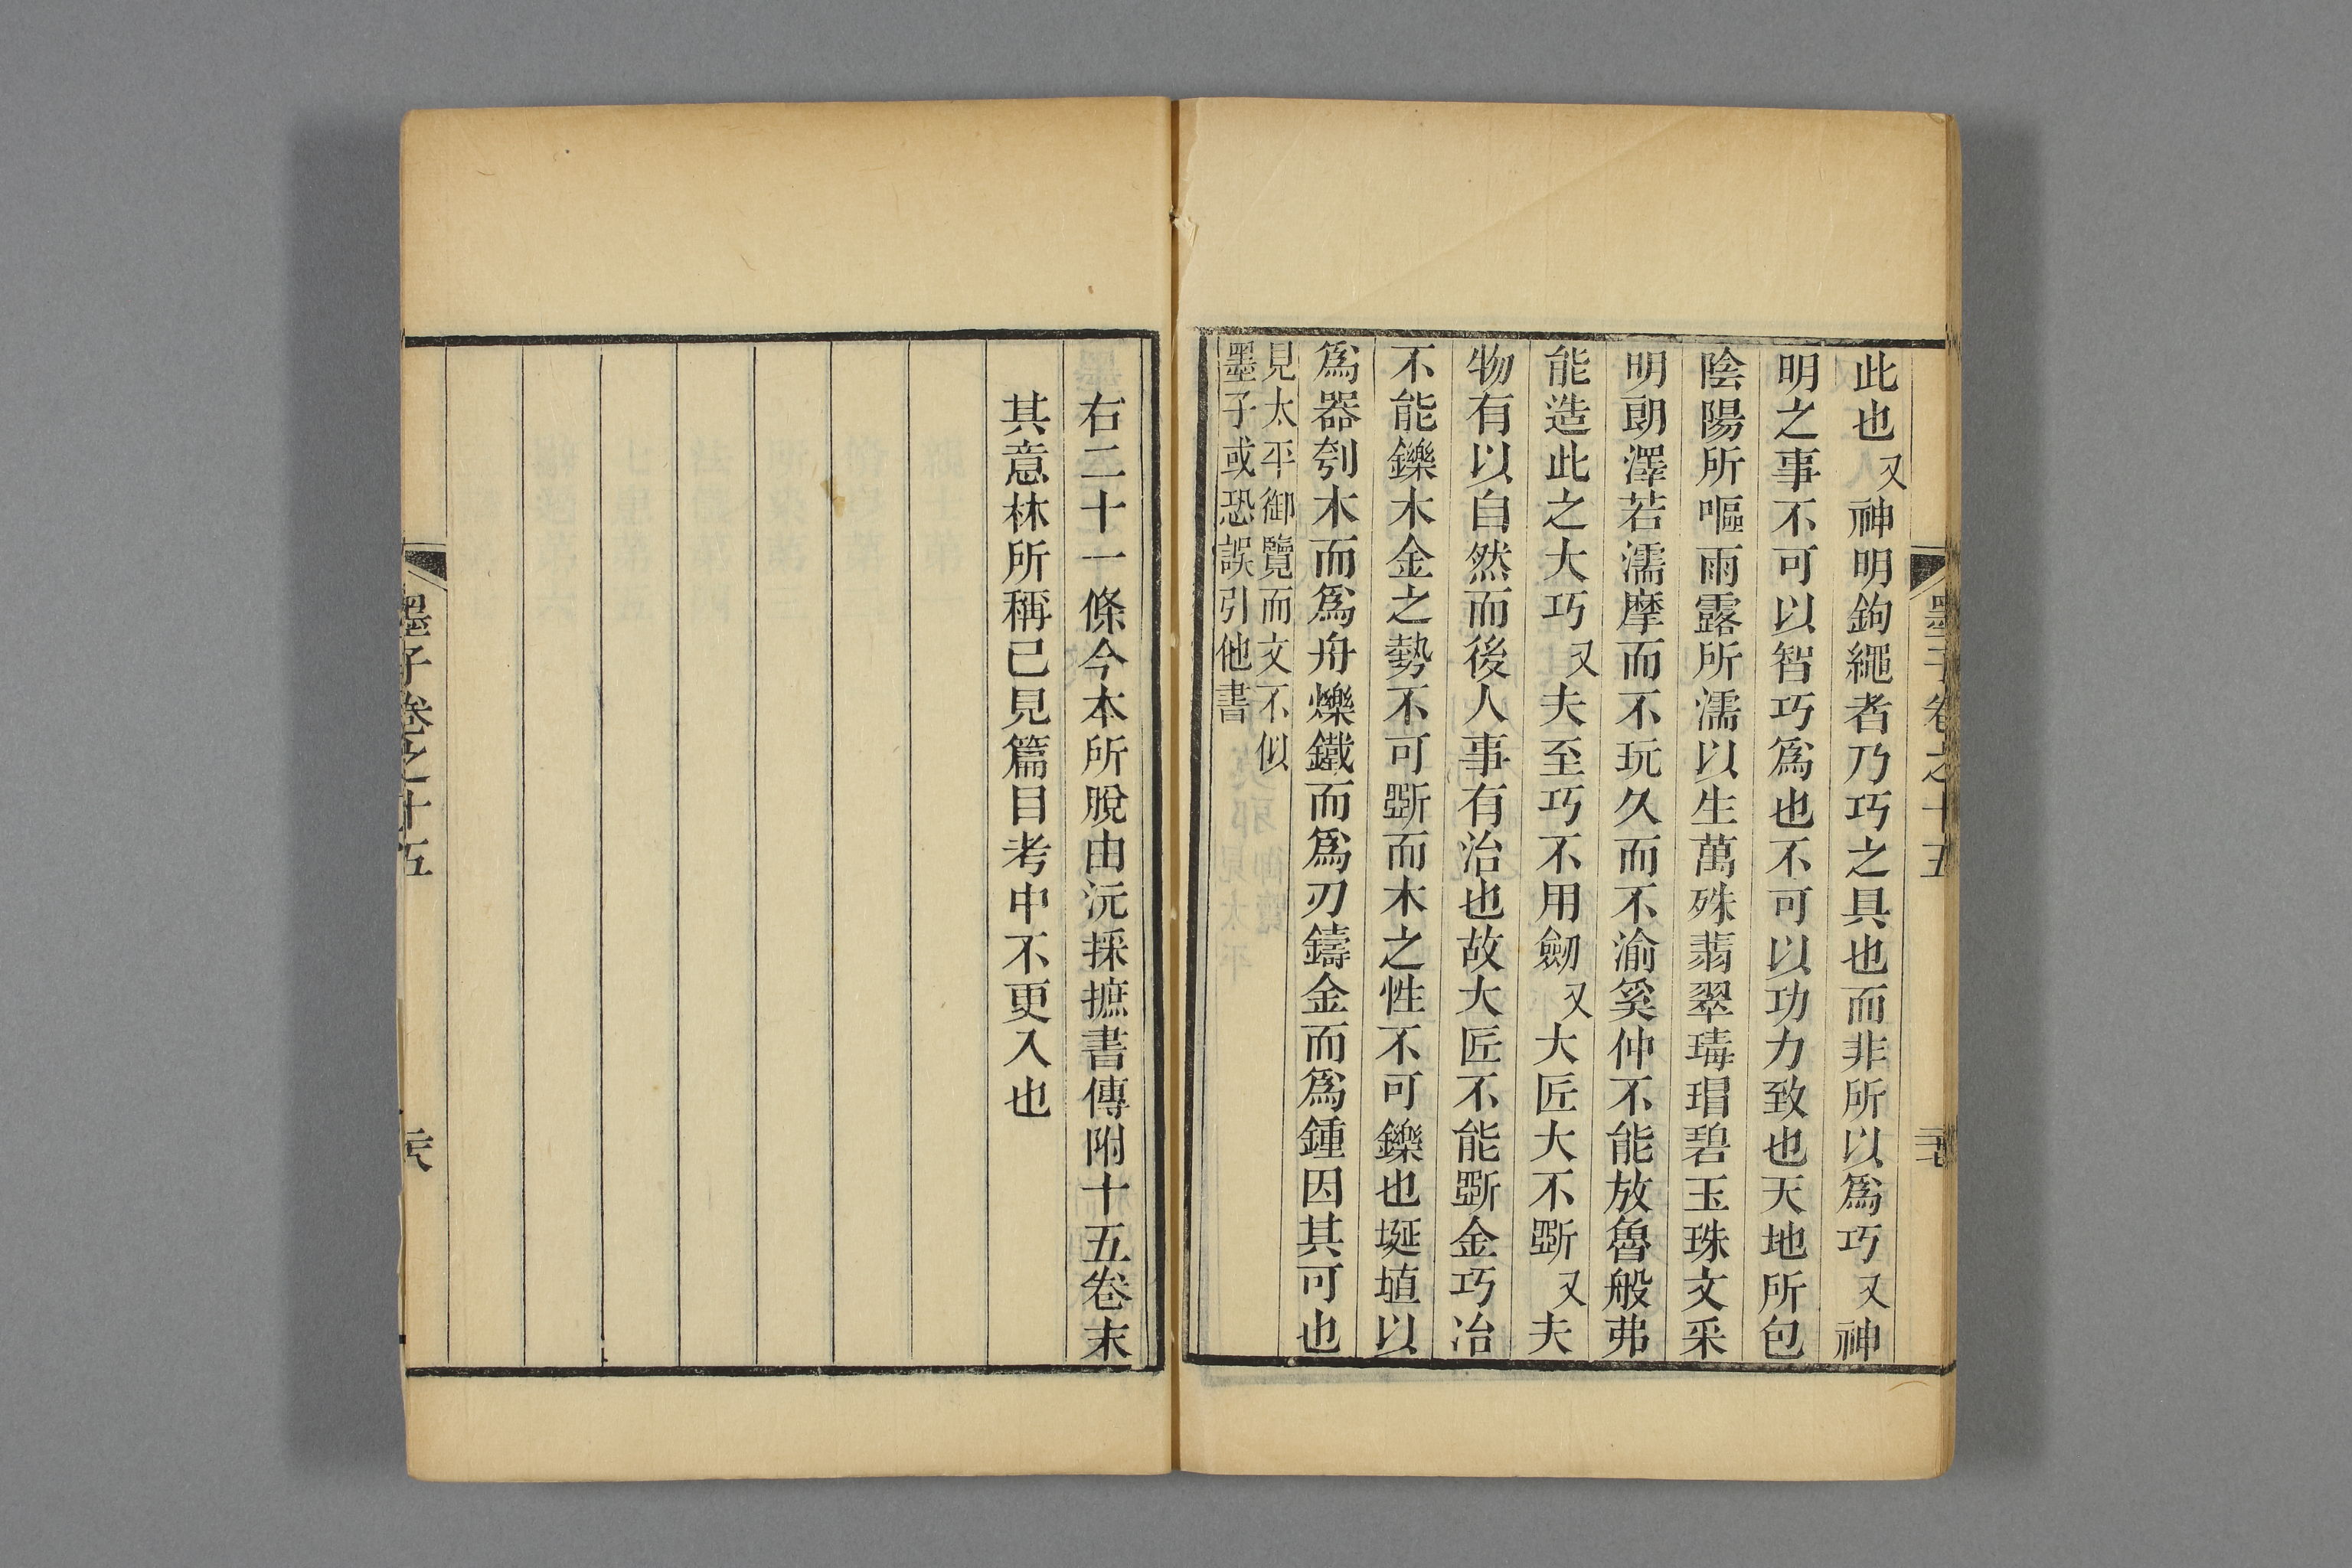 此也又神明鉤繩者乃巧之具也而非所以爲巧又神
明之事不可以智巧爲也不可以功力致也天地所包
陰陽所嘔雨露所濡以生萬殊翡翠瑇瑁碧玉珠文采
明朗澤若濡摩而不玩久而不渝奚仲不能放魯般弗
能造此之大巧又夫至巧不用劒又大匠大不斲又夫
物有以自然而後人事有治也故大匠不能斲金巧冶
不能鑠木金之勢不可斲而木之性不可鑠也埏埴以
爲器刳木而爲舟爍鐵而爲刃鑄金而爲鍾因其可也
見太平御覽而文不似
墨子或恐誤引他書
墨子卷之十五
右二十一條今本所脫由沅採摭書傳附十五卷末
其意林所稱已見篇目考中不更入也
墨子卷之十五